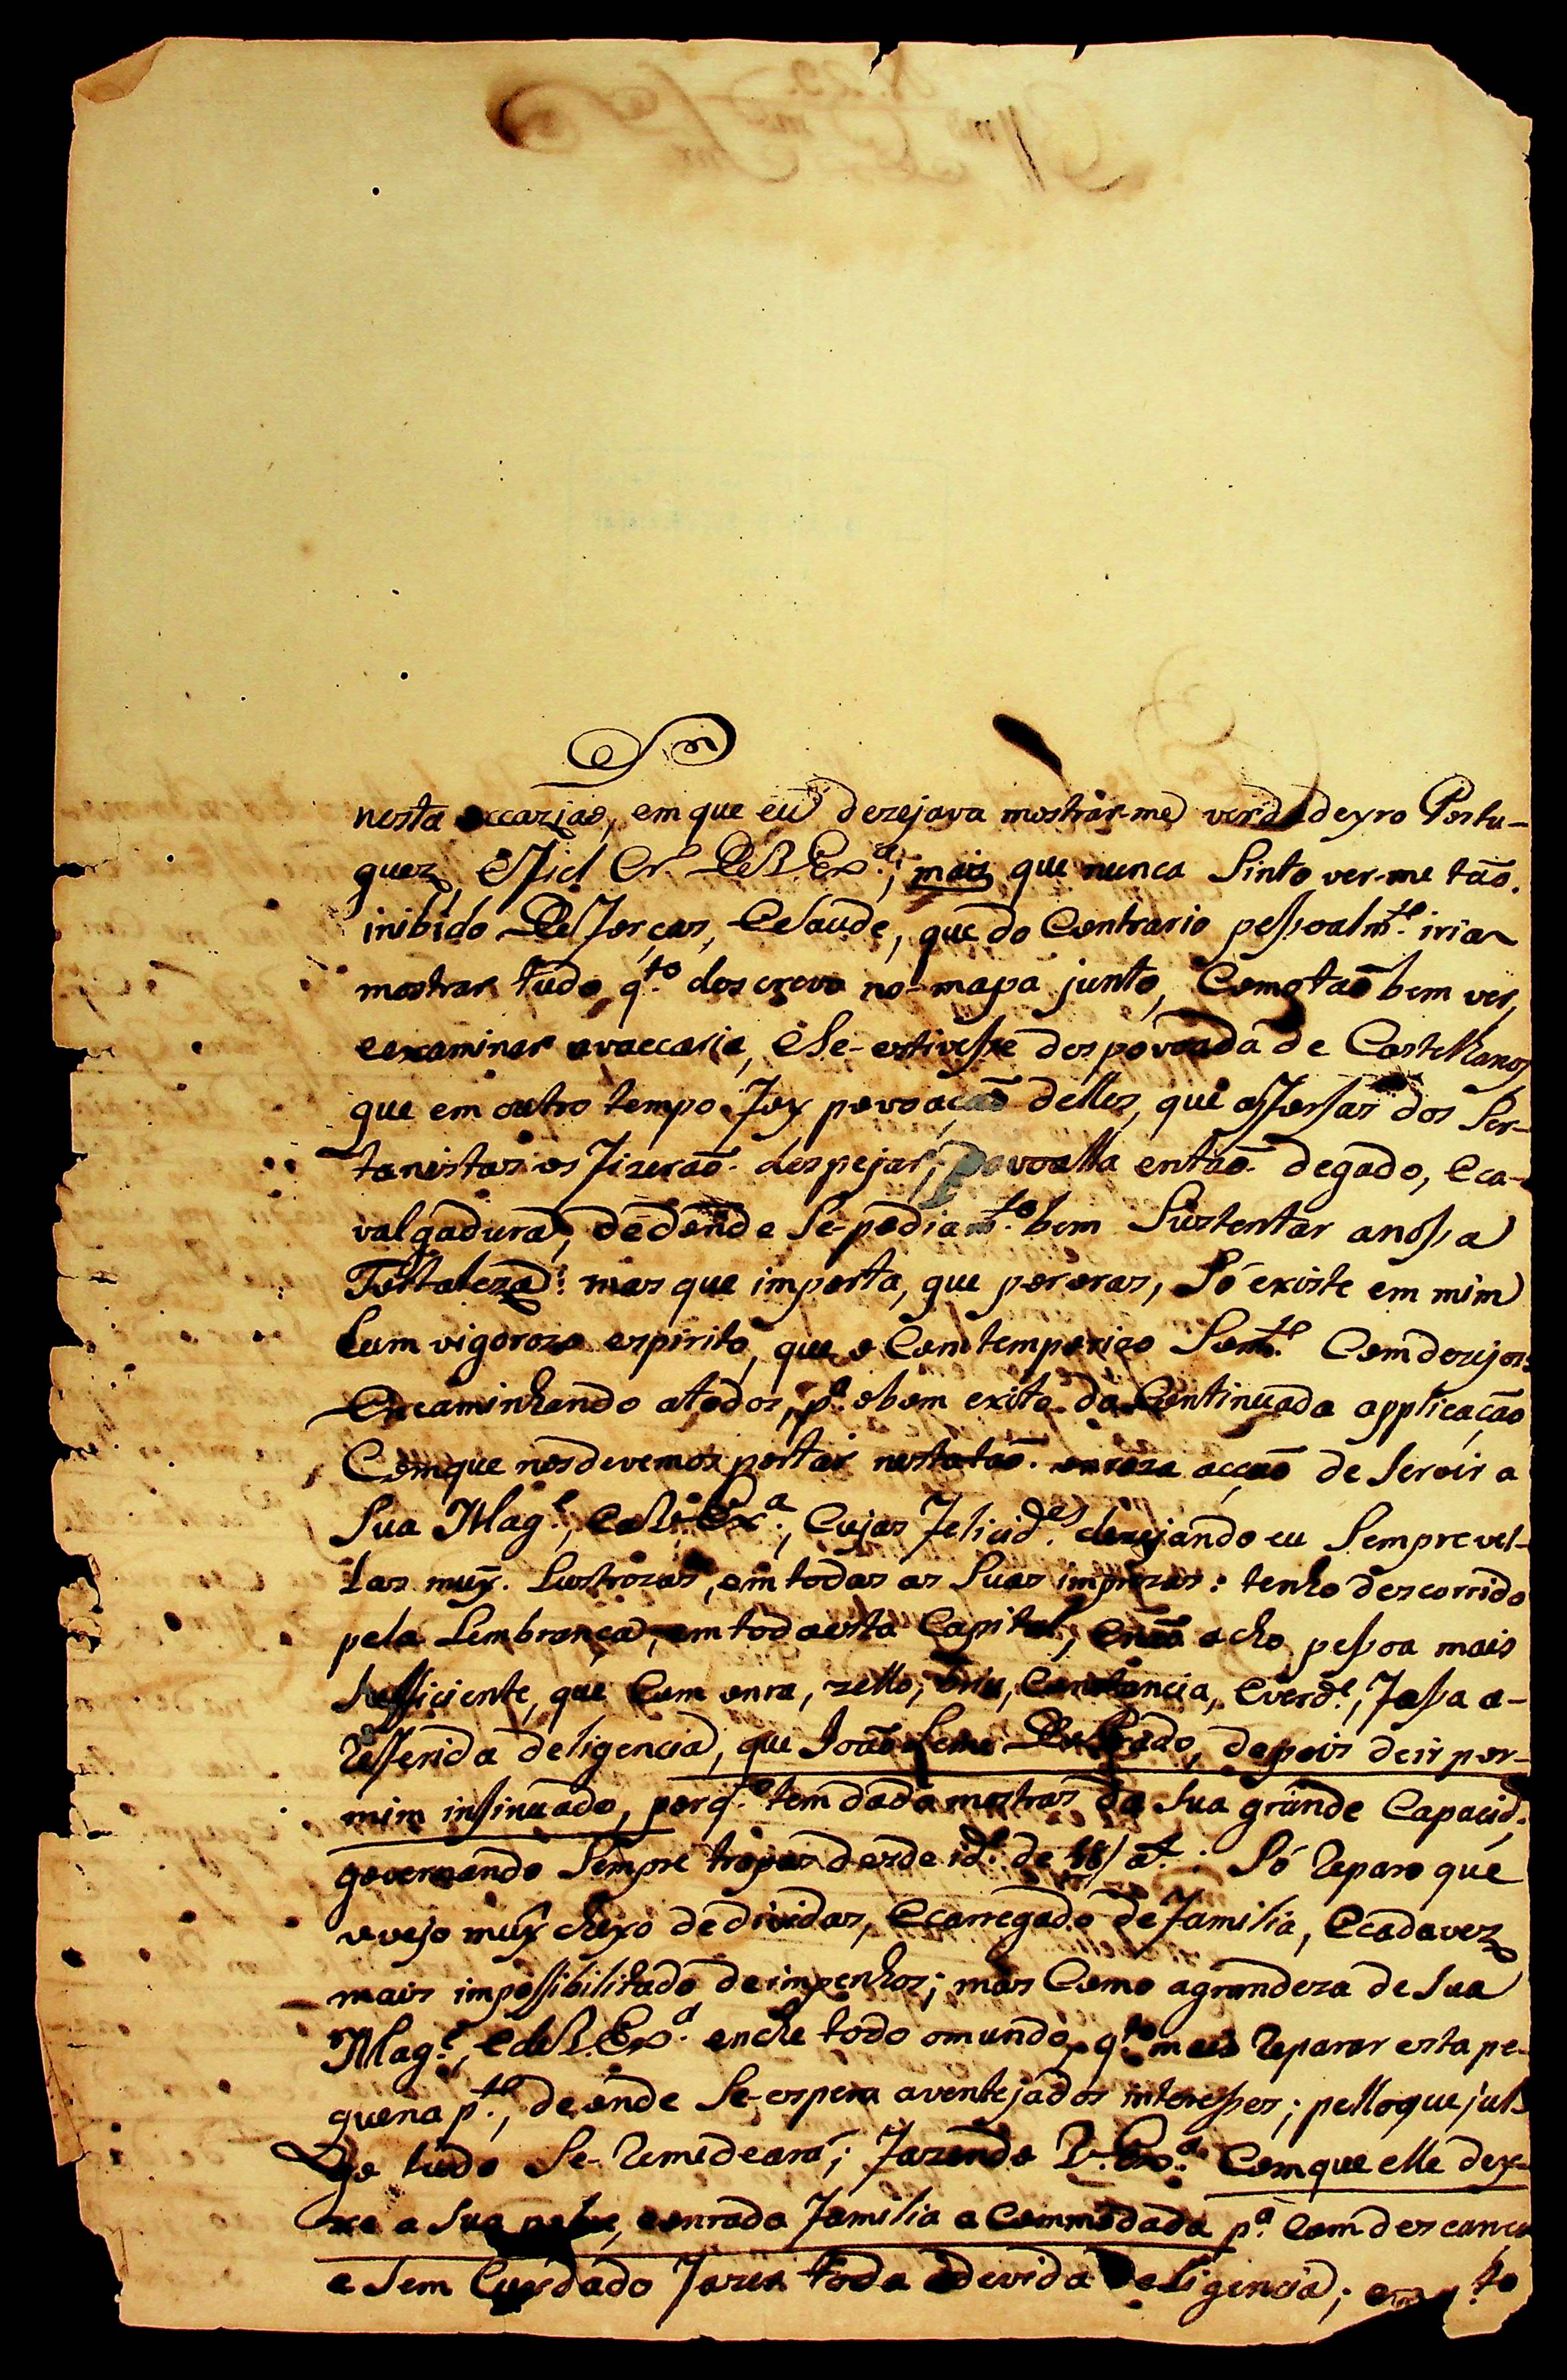 nesta occaziao, em que eu dezejava mostrar-me verdadeyro Portu-
guez, e fiel Cr. De V. Exª.; mais que nunca Sinto ver-me taõ
inibido De forças, e Saude, que do Contrario peßoalmte. iria
mostrar tudo qto. descrevo no mapa junto, Como taõ bem ver,
e examinar avaccaria, e Se-estiveße despovoada de Castelhanos
que em outro tempo foy povoaçaõ delles, que as forsas dos Ser-
tanistas os fizeraõ despejar, povoalla entaõ degado, eca-
valgadura, dedonde Se-podia mto. bem Sustentar anoßa
Fortaleza: mas que importa, que pororas, Só existe em mim
hum vigorozo espirito, que o Contemporizo Somte. Com dezejos
Encaminhando atodos, pª. obom exito da Continuada applicaçaõ
Comque nosdevemos portar nestataõ onroza acçaõ de Servir a
Sua Mage., e a V. Exª., Cujas felicides. dezejando eu Sempre vel-
las muy. Lustrozas, em todas as Suas imprezas: tenho descorrido
pela Lembrança, em toda esta Capital, e naõ acho peßoa mais
Sufficiente, que Com onra, zello, briu, Constancia, everde., faßa a-
Referida deligencia, que Joaõ Leme Do Prado, depois deir por-
mim insinuado, porqe. tem dado mostras da Sua grande Capacide.
governando Sempre tropas desde ide. de 18/at.: Só Reparo que
o vejo muy cheyo de dividas, Ecarregado de familia, Ecadavez
mais impoßibilitado deimpenhos; mas Como agrandeza de Sua
Mage., e de V. Exª. enche todo omundo, qto. mais Reparar esta pe-
quena pte., de onde Se-espera aventejados intereßes; pelloque jul-
go tudo Se-Remedeará; fazendo V. Exª. Comque elle dey-
xe a Sua pobre, e onrada familia a Commodada pª. Com descanço
e Sem Cuydado fazer toda a devida deligencia; em qto.